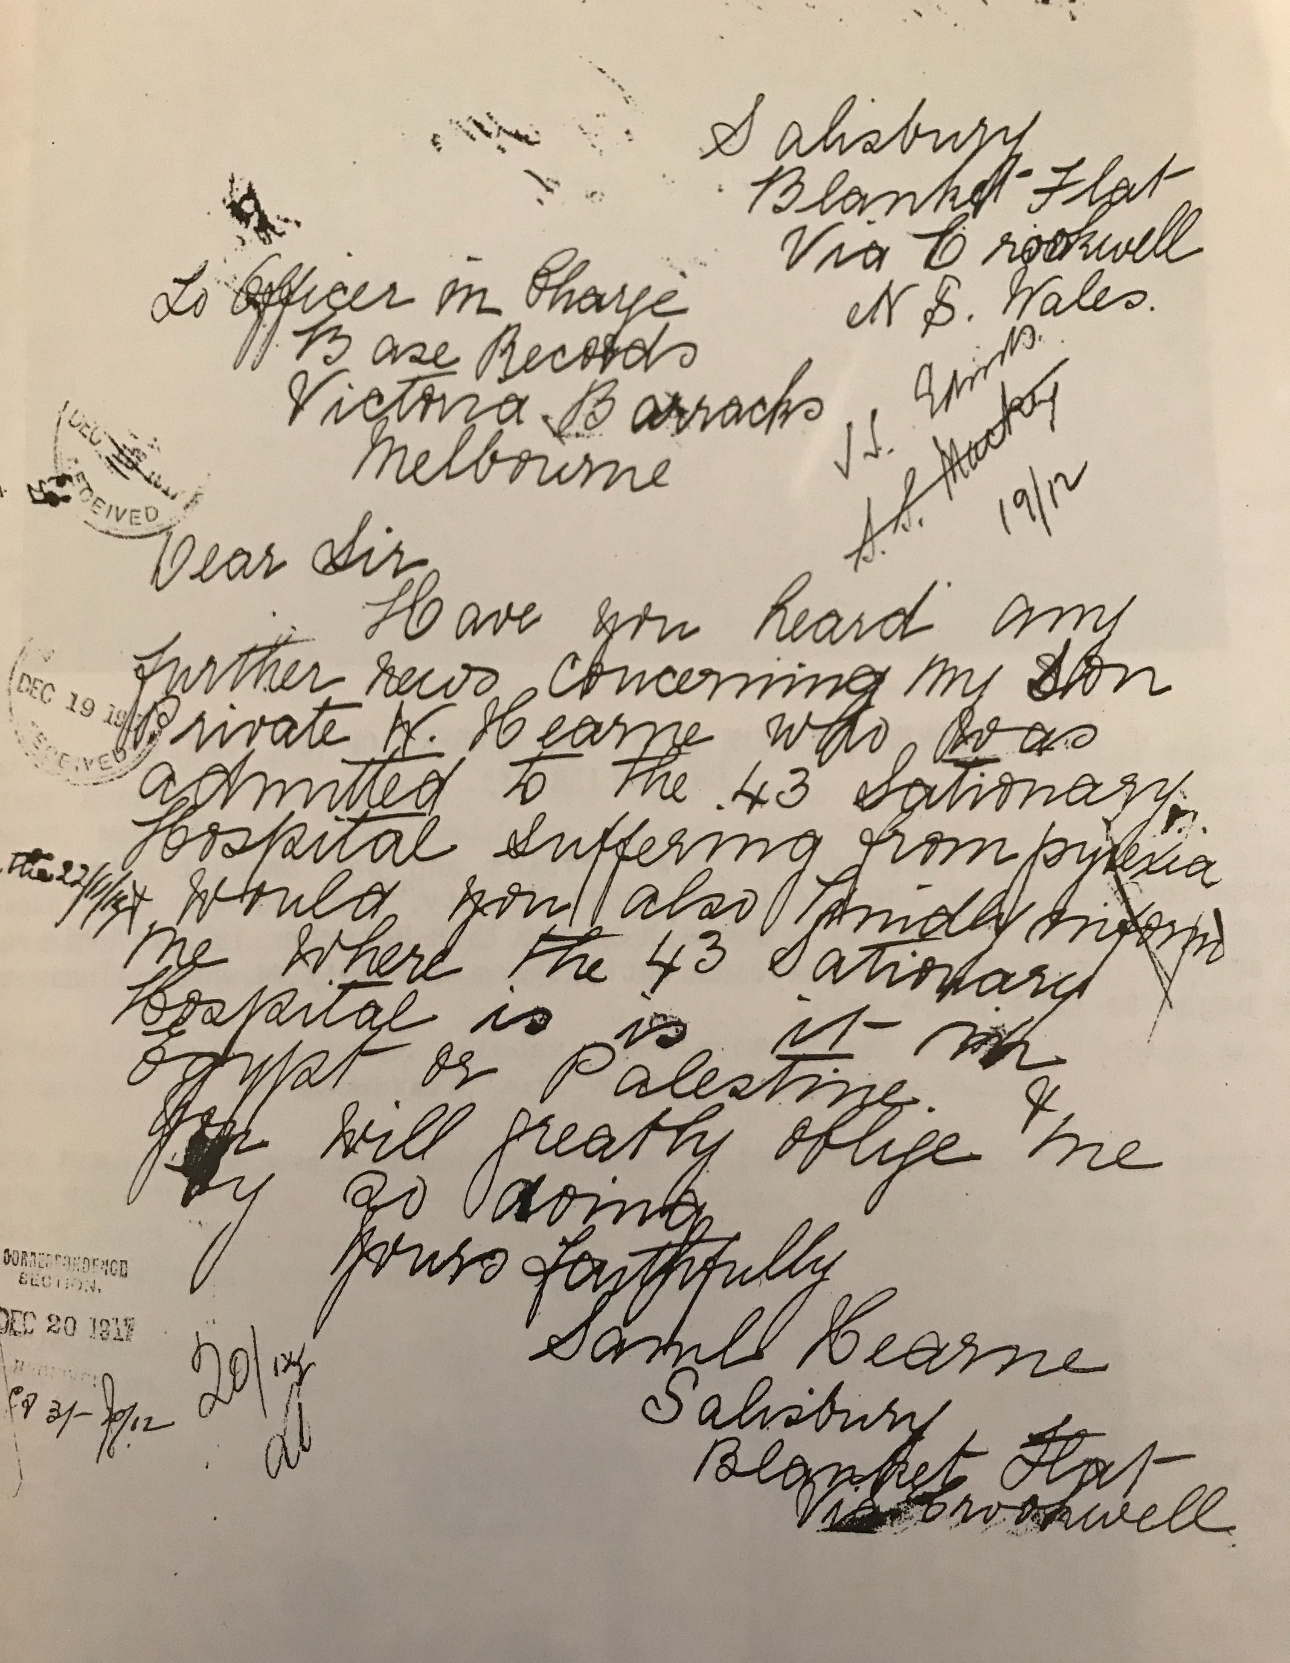 Salisbury
Blanket Flat
Via Crookwell
N S. Wales.
To Officer in Charge
Base Records
Victoria Barracks
Melbourne
19/12
DEC
RECEIVED
Dear Sir
Have you heard any
further news concerning my Son
DEC 19
Private W. Hearne who was
RECEIVED
admitted to the 43 Sationary
Hospital suffering from pyrexia
the 22/11/17
would you also kindly inform
me where the 43 Sationary
Hospital is is it in
Egypt or Palestine. &
you will greatly oblige me
by so doing
yours faithfully
Saml Hearne
Salisbury
Blanket Flat
Via Crookwell
CORRESPONDENCE
SECTION.
DEC 20 1917